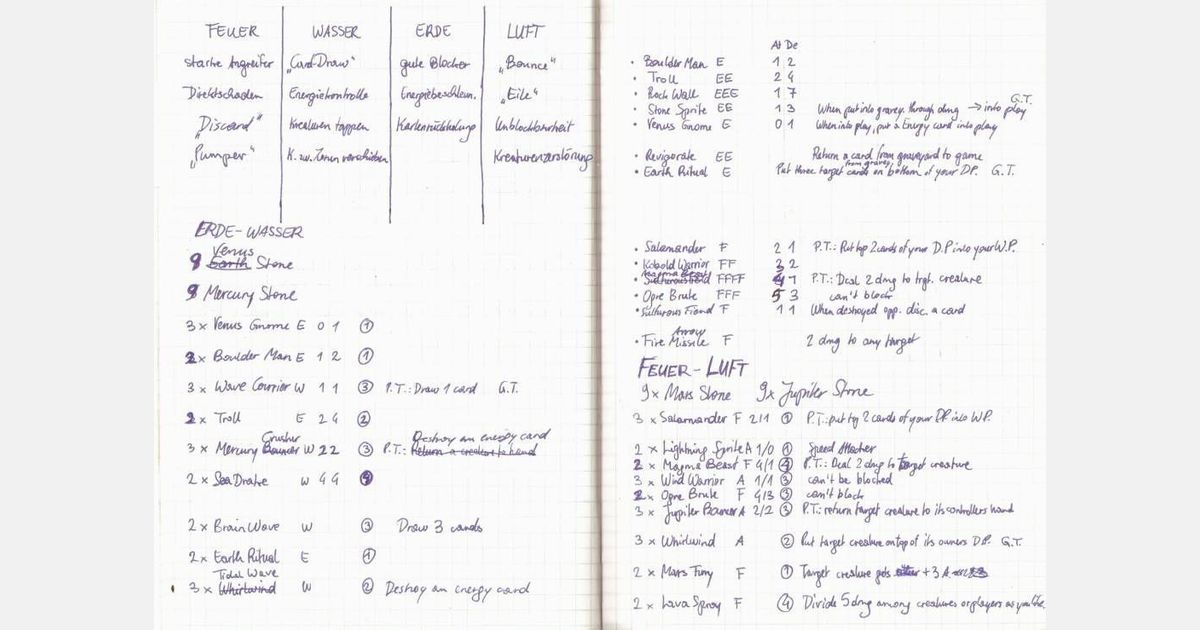 FEUER WASSER ERDE LUFT
starke Angreifer „Card-Draw“ gute Blocker „Bounce“
Direktschaden Energiekontrolle Energiebeschleun. „Eile“
„Discard“ Kreaturen tappen Kartenrückholung Unblockbarkeit
„Pumper“ K. zw. Zonen verschieben Kreaturenzerstörung
ERDE-WASSER
Venus
9 Earth Stone
9 Mercury Stone
3 x Venus Gnome E 0 1 1
2 x Boulder Man E 1 2 1
3 x Wave Courrior W 1 1 3 P.T.: Draw 1 card G.T.
2 x Troll E 2 4 2
Crusher Destroy an energy card
3 x Mercury Bouncer W 2 2 3 P.T.: Return a creature to hand
2 x Sea Drake W 4 4
2 x Brain Wave W 3 Draw 3 cards
2 x Earth Ritual E 1
Tidal Wave
3 x Whirlwind W 2 Destroy an energy card
At De
• Boulder Man E 1 2
• Troll EE 2 4
• Rock Wall EEE 1 7
G.T.
• Stone Sprite EE 1 3 When put into gravey. through dmg → into play
• Venus Gnome E 0 1 When into play, put a Energy card into play
• Revigorate EE Return a card from graveyard to game
from gravey.
• Earth Ritual E Put three target cards on bottom of your DP. G.T.
• Salamander F 2 1 P.T.: Put top 2 cards of your D.P into your W.P.
• Kobold Warrior FF 3 2
Magma Beast
• FFFF 4 1 P.T.: Deal 2 dmg to trgt. creature
• Ogre Brute FFF 5 3 can't block
• Sulfurous Fiend F 1 1 When destroyed opp. disc. a card
Arrow
• Fire Missile F 2 dmg to any target
FEUER-LUFT
9x Mars Stone 9x Jupiter Stone
3 x Salamander F 2/1 1 P.T.: put top 2 cards of your DP into W.P.
2 x Lightning Sprite A 1/0 1 Speed Attacker
2 x Magma Beast F 4/1 4 P.T.: Deal 2 dmg to target creature
3 x Wind Warrior A 1/1 3 can't be blocked
2 x Ogre Brute F 4/3 3 can't block
3 x Jupiter Bouncer A 2/2 3 P.T.: return target creature to its controllers hand
3 x Whirlwind A 2 Put target creature on top of its owners D.P. G.T.
2 x Mars Fury F 1 Target creature gets +3 A
2 x Lava Spray F 4 Divide 5 dmg among creatures or players as you like